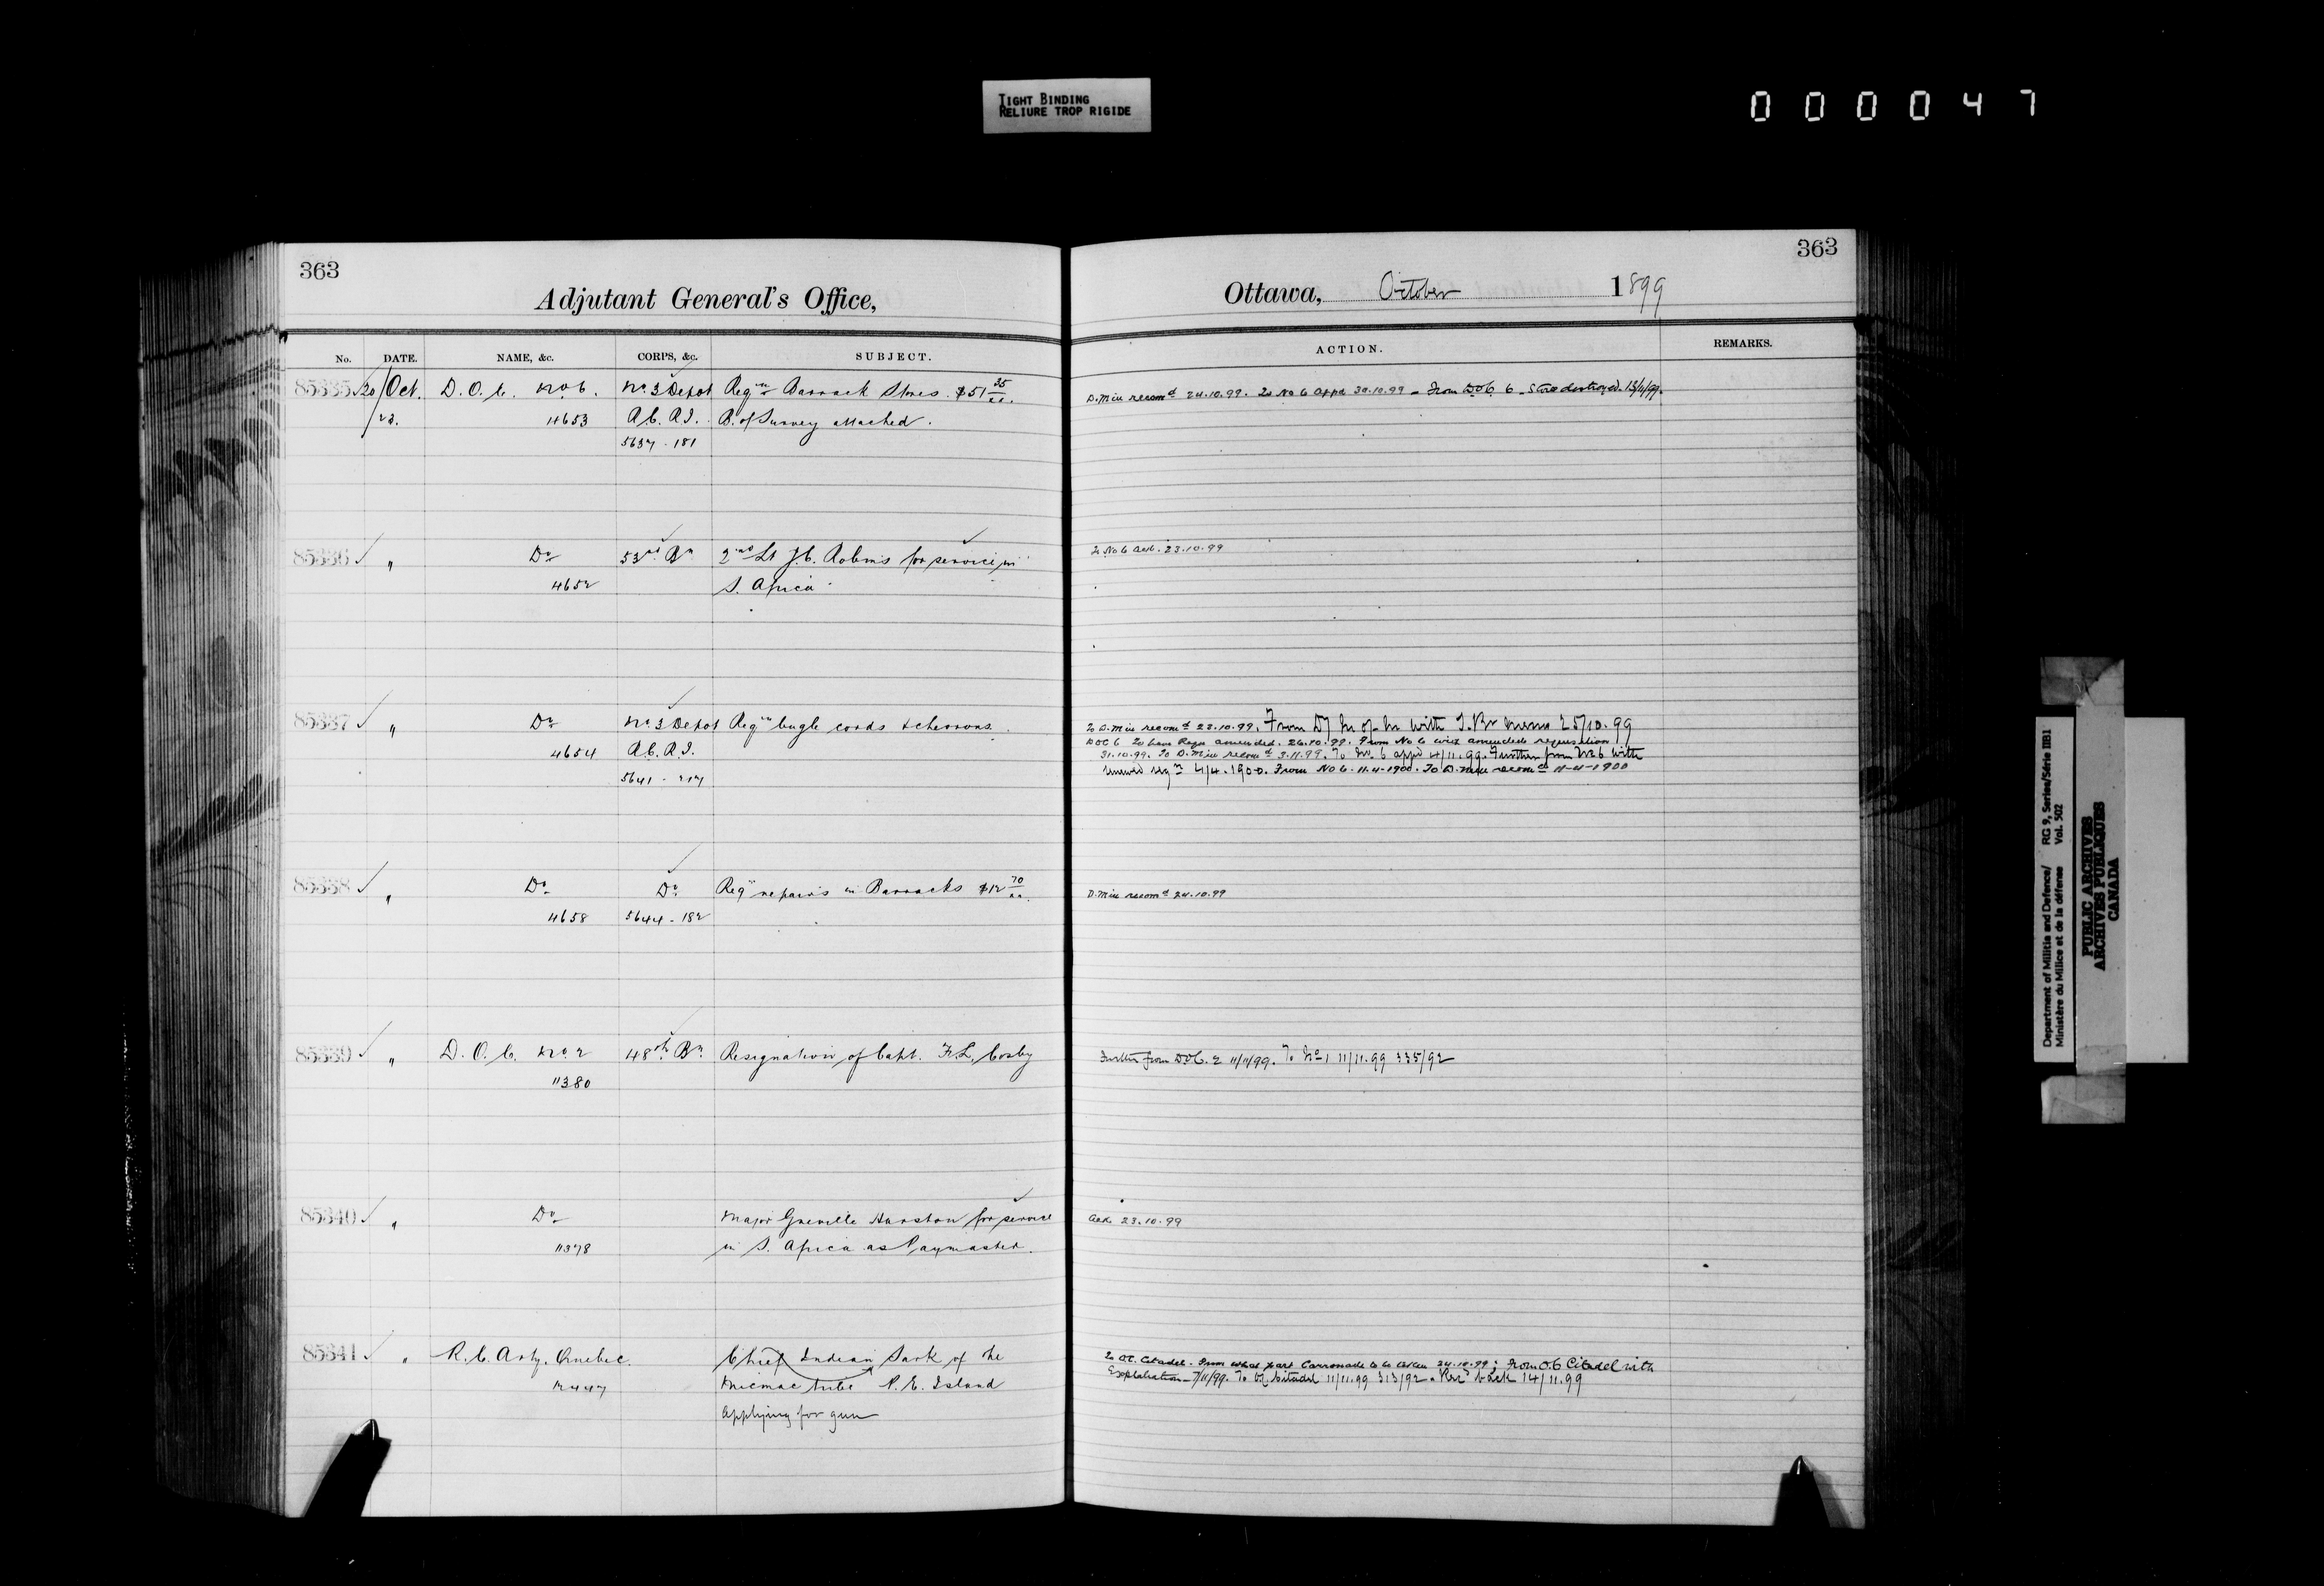 TIGHT BINDING
RELIURE TROP RIGIDE
000047
363
Adjutant General's Office,
No. DATE. NAME, &c. CORPS, &c. SUBJECT.
85335 20/Oct. D.O.C. No 6. No 3 Depot Reqn Barrack Stores $51 35
/23. 4653 R.C.R.I. B. of Survey attached.
5637-181
85336 " Do 53rd Bn 2nd Lt J.C. Robins for service in
4652 S. Africa
85337 " Do No 3 Depot Reqn bugle cords & chevrons.
4654 R.C.R.I.
5641-217
85338 " Do Do Reqn repairs in Barracks $12 70
4658 5644-182
85339 " D.O.C. No 2 48th Bn Resignation of Capt. F.L. Cosby
11380
85340 " Do Major Greville Harston for service
11378 in S. Africa as Paymaster.
85341 " R.C. Arty. Quebec. Chief Indian Sark of the
12447 Micmac tribe P.E. Island
Applying for gun
363
Ottawa, October 1899
ACTION. REMARKS.
D.Min recomd 24.10.99. To No 6 appd 30.10.99 - From DOC 6 - Stores destroyed. 13/11/99.
To No 6 ack. 23.10.99
To D.Min recomd 23.10.99. From with memo 25/10.99
DOC 6 To have Reqn amended. 26.10.99. From No 6 with amended requisition
31.10.99. To D.Min recomd 3.11.99. To No. 6 appd 4/11.99. Further from No 6 with
reqn 4/4.1900. From No 6. 11-4-1900. To D.Min recomd 11-4-1900
D.Min recomd 24.10.99
Further from DOC. 2 11/11/99. To No 1 11/11.99 335/92
Ack 23.10.99
To OC. Citadel. From what part Carronade to be taken 24.10.99; From O.C Citadel with
Explanation 7/11/99. To OC Citadel 11/11.99 313/92. back 14/11.99
Department of Militia and Defence/ RG 9, Series/Série IIB1
Ministère du Milice et de la défense Vol. 502
PUBLIC ARCHIVES
ARCHIVES PUBLIQUES
CANADA